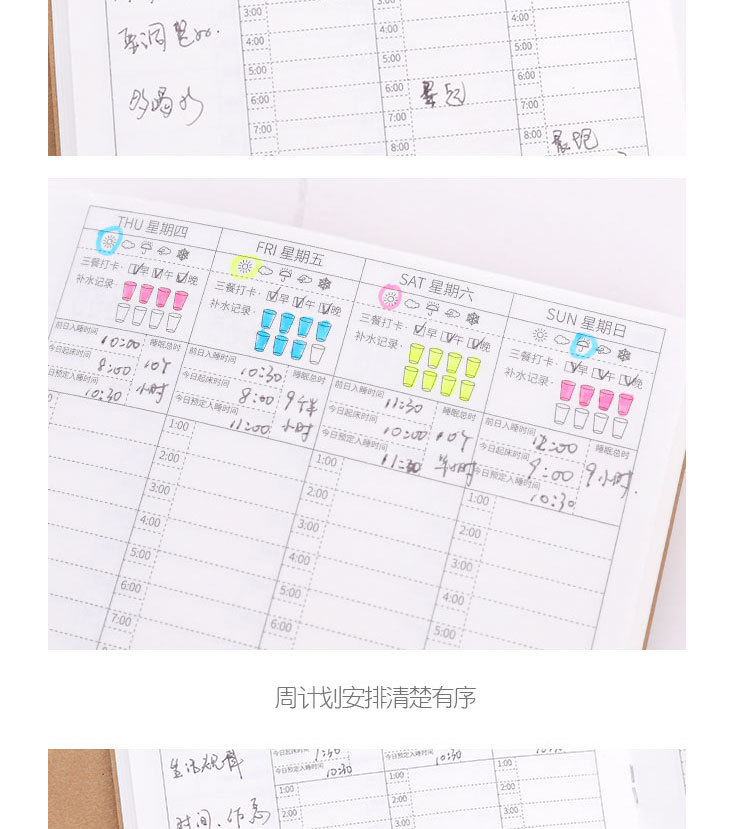 3:00
3:00
4:00
4:00
4:00
5:00
5:00
5:00
6:00
6:00
6:00
多喝水
7:00
7:00
7:00
8:00
8:00
晨跑
THU 星期四
FRI 星期五
SAT 星期六
SUN 星期日
三餐打卡· 早 午 晚
补水记录·
三餐打卡· 早 午 晚
补水记录·
三餐打卡· 早 午 晚
补水记录·
三餐打卡· 早 午 晚
补水记录·
前日入睡时间 10:00 睡眠总时
今日起床时间 8:00 10个
今日预定入睡时间 10:30 小时
前日入睡时间 10:30 睡眠总时
今日起床时间 8:00 9个半
今日预定入睡时间 11:00 小时
前日入睡时间 11:30 睡眠总时
今日起床时间 10:00 10个
今日预定入睡时间 11:30 半小时
前日入睡时间 12:00 睡眠总时
今日起床时间 9:00 9小时.
今日预定入睡时间 10:30
1:00
2:00
3:00
4:00
5:00
6:00
7:00
1:00
2:00
3:00
4:00
5:00
6:00
1:00
2:00
3:00
4:00
5:00
周计划安排清楚有序
今日起床时间 7:30
今日预定入睡时间 10:30
今日预定入睡时间 10:30
1:00
1:00
1:00
2:00
2:00
2:00
3:00
3:00